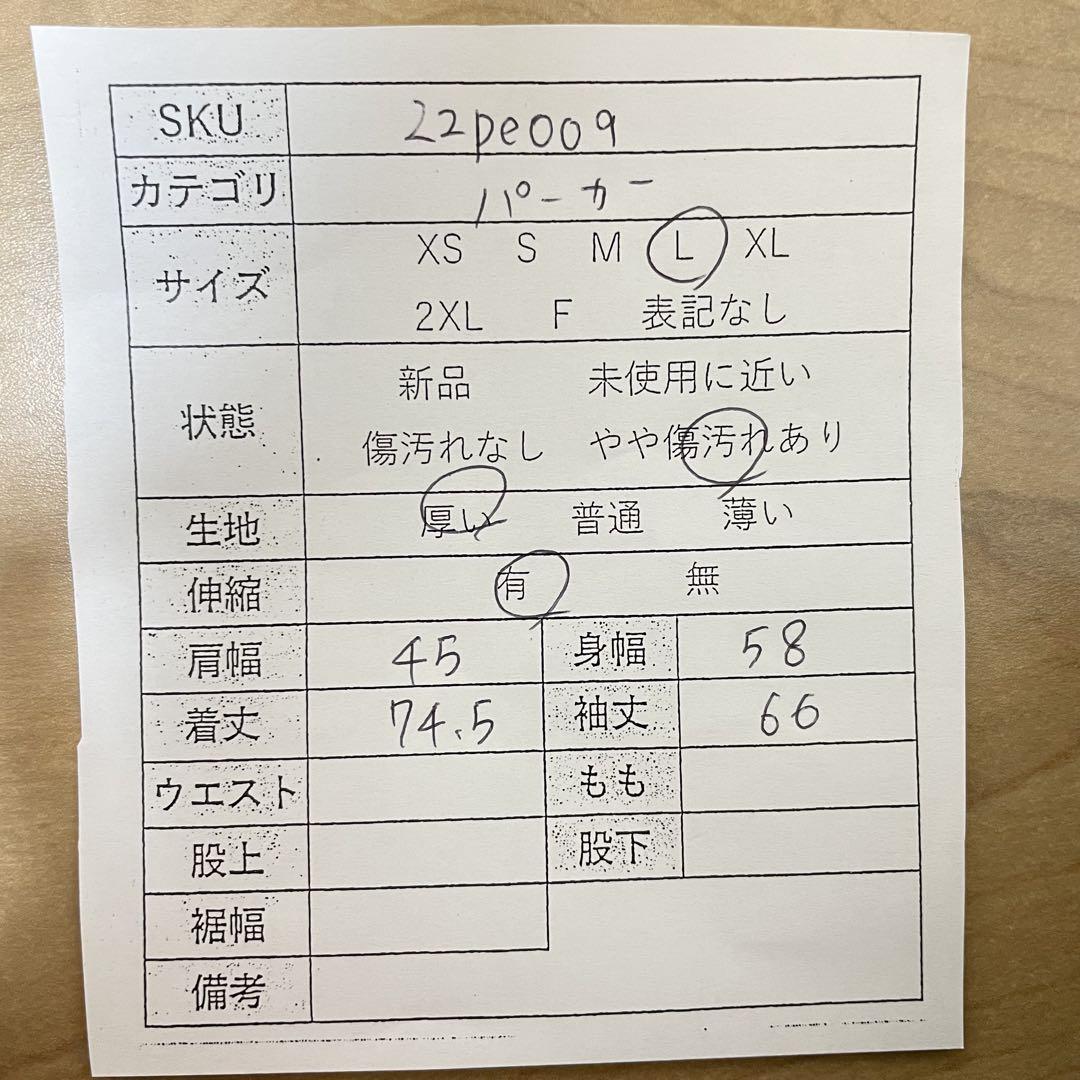 SKU 22pe009
カテゴリ パーカー
サイズ XS S M L XL
2XL F 表記なし
状態 新品 未使用に近い
傷汚れなし やや傷汚れあり
生地 厚い 普通 薄い
伸縮 有 無
肩幅 45 身幅 58
着丈 74.5 袖丈 60
ウエスト もも
股上 股下
裾幅
備考